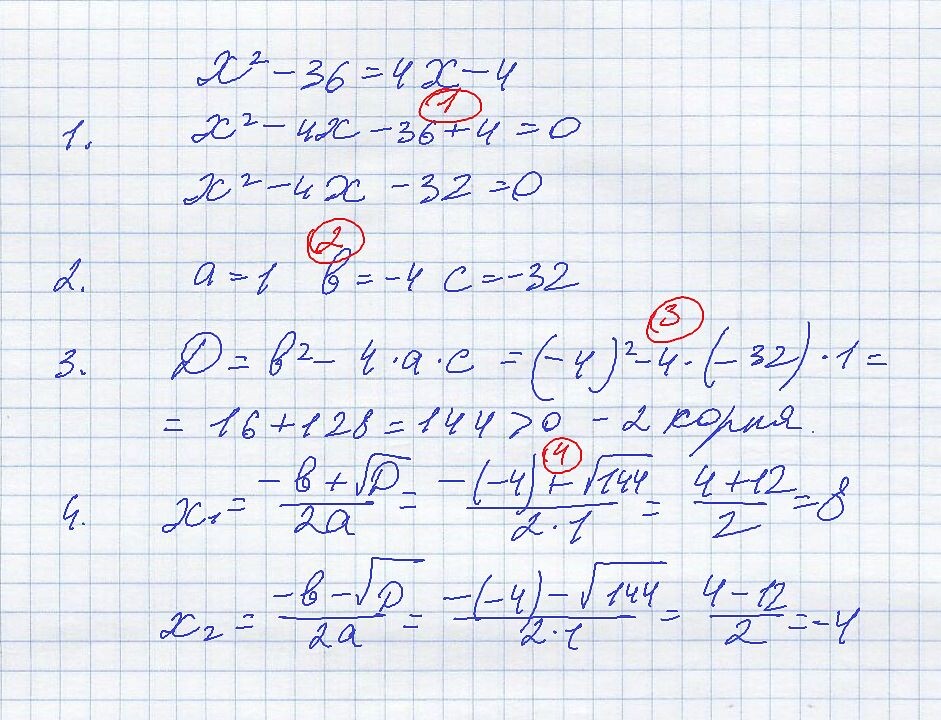 x² - 36 = 4x - 4
1
1. x² - 4x - 36 + 4 = 0
x² - 4x - 32 = 0
2
2. a = 1 в = -4 c = -32
3
3. D = в² - 4·a·c = (-4)² - 4·(-32)·1 =
= 16 + 128 = 144 > 0 - 2 корня.
4
4. x₁ = (-в + √D)/2a = (-(-4) + √144)/2·1 = (4 + 12)/2 = 8
x₂ = (-в - √D)/2a = (-(-4) - √144)/2·1 = (4 - 12)/2 = -4